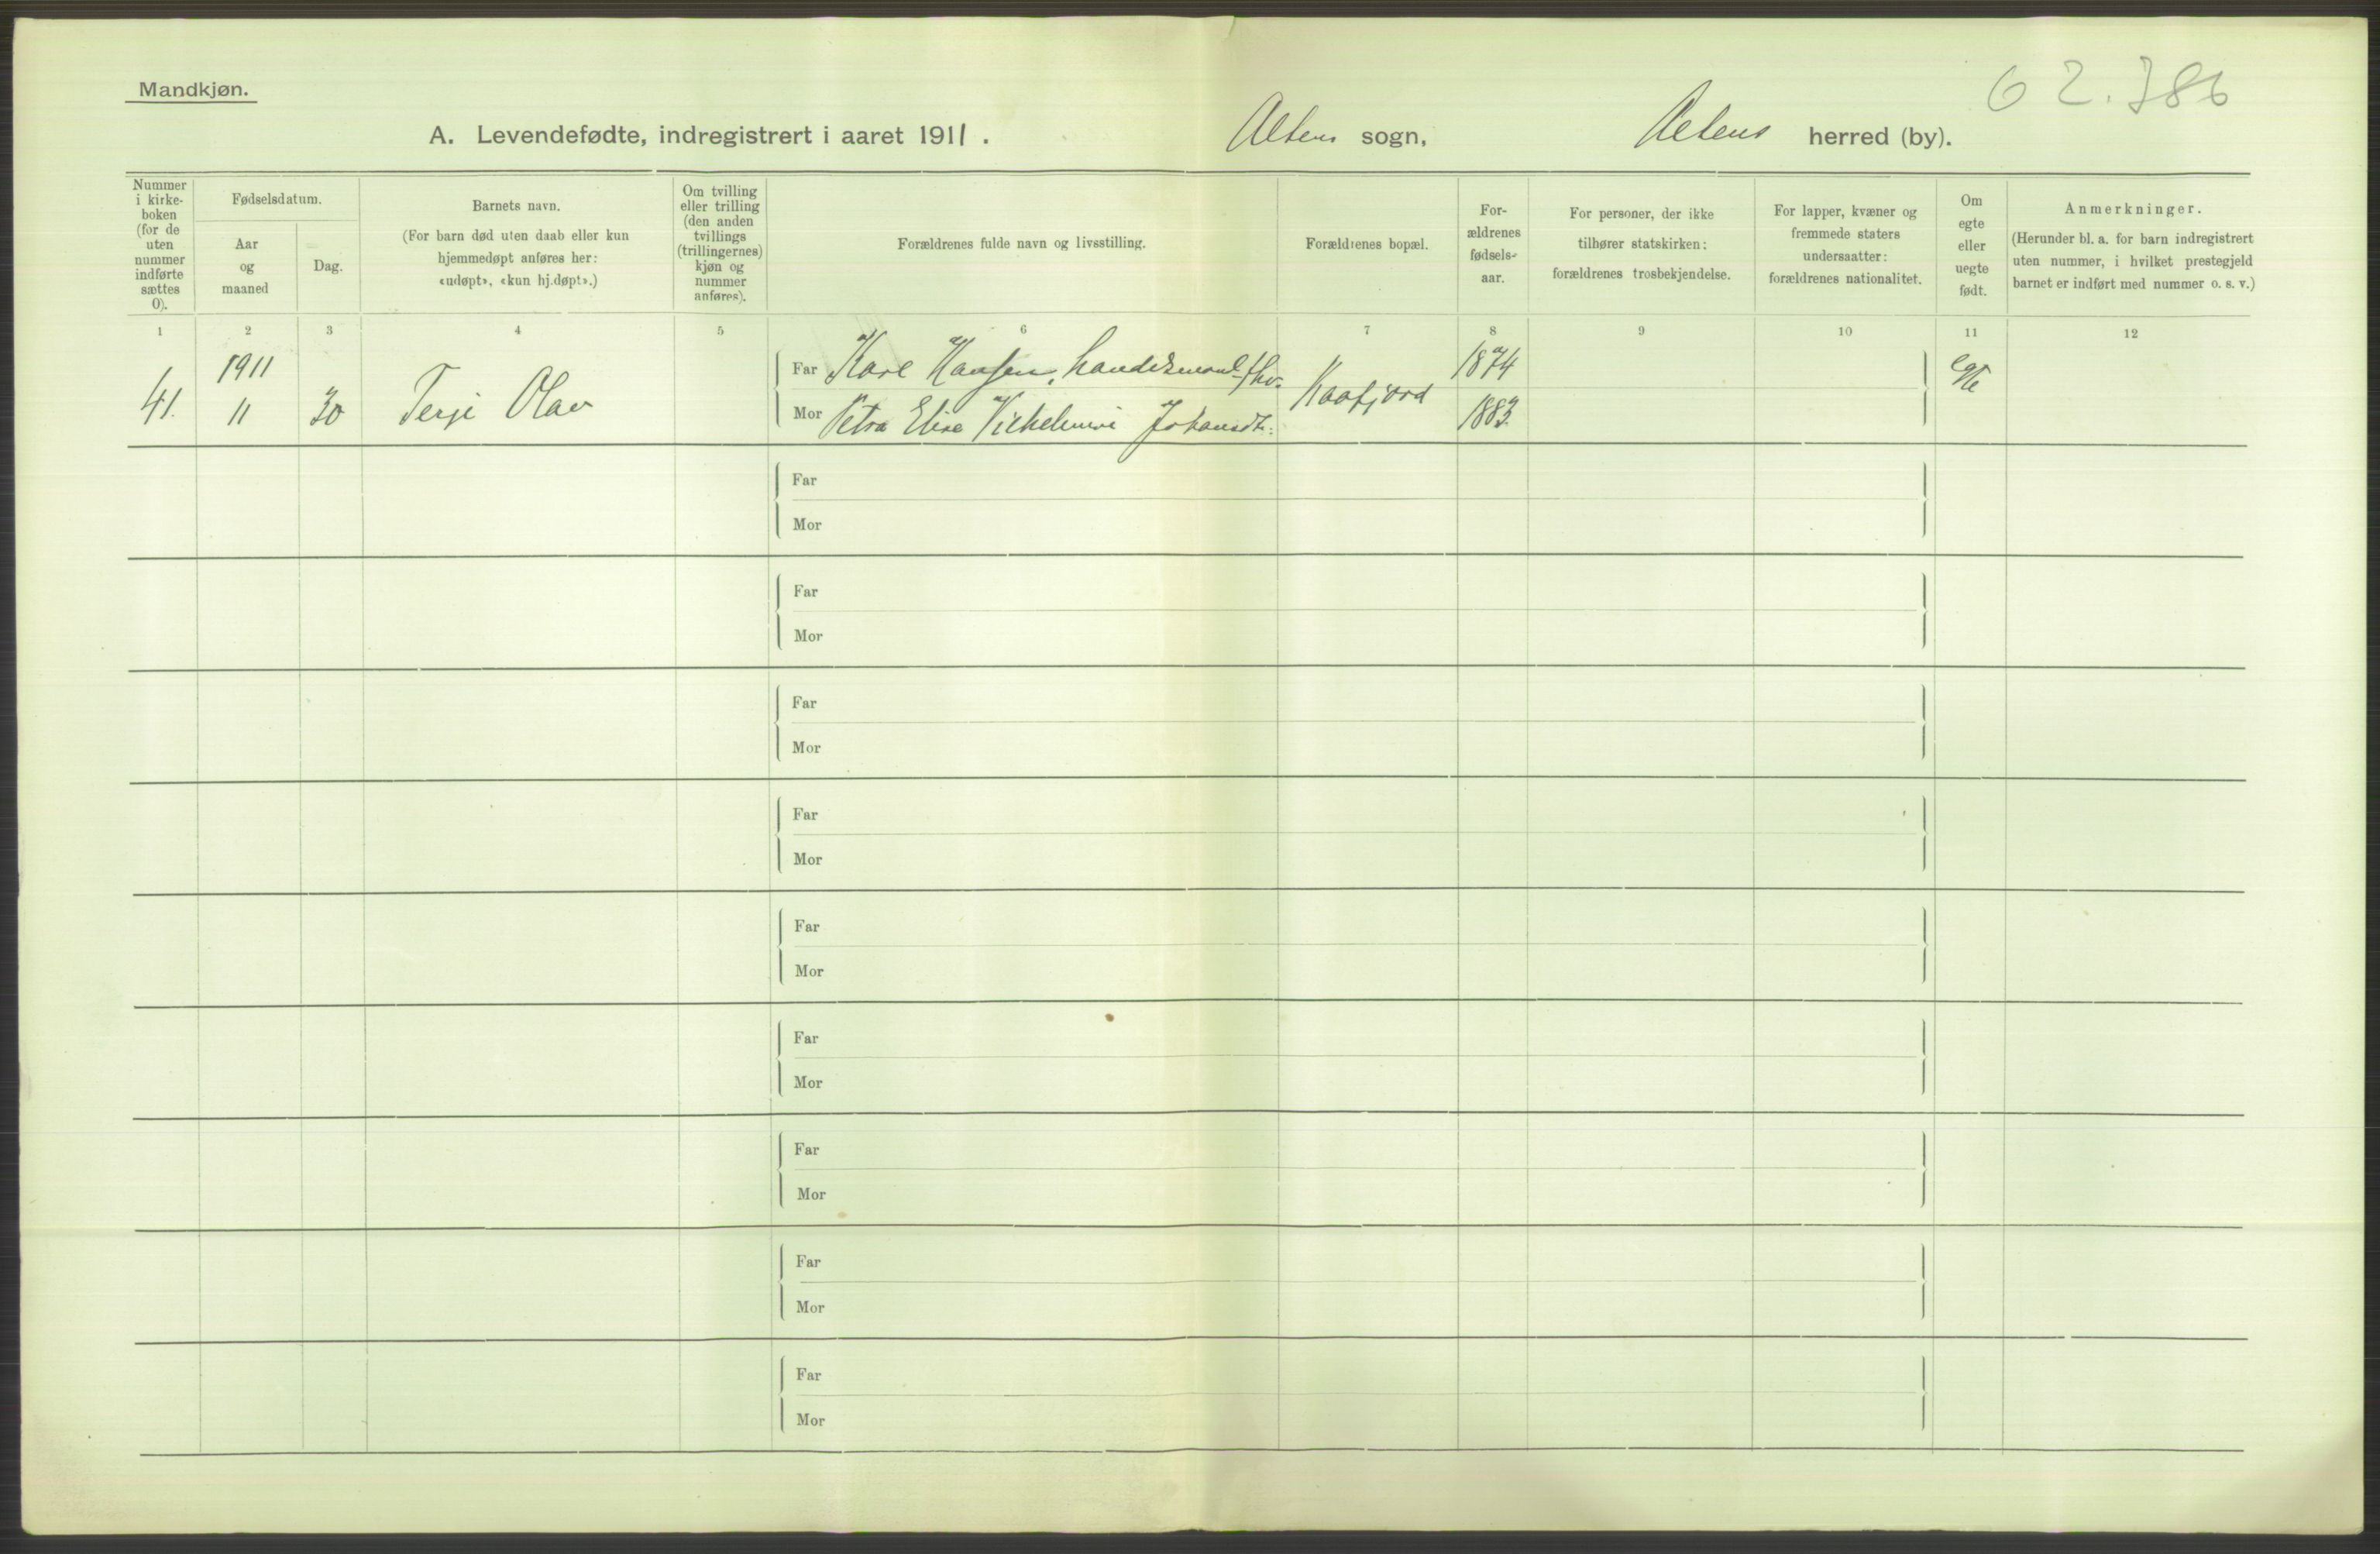 Mandkjøn.
62.386
A. Levendefødte, indregistrert i aaret 1911. Altens sogn, Altens herred (by).
Nummer
i kirke-
boken
(for de
uten
nummer
indførte
sættes
0).
Fødselsdatum.
Aar
og
maaned
Dag.
Barnets navn.
(For barn død uten daab eller kun
hjemmedøpt anføres her:
«udøpt», «kun hj.døpt».)
Om tvilling
eller trilling
(den anden
tvillings
(trillingernes)
kjøn og
nummer
anføres).
Forældrenes fulde navn og livsstilling.
Forældrenes bopæl.
For-
ældrenes
fødsels-
aar.
For personer, der ikke
tilhører statskirken:
forældrenes trosbekjendelse.
For lapper, kvæner og
fremmede staters
undersaatter:
forældrenes nationalitet.
Om
egte
eller
uegte
født.
Anmerkninger.
(Herunder bl. a. for barn indregistrert
uten nummer, i hvilket prestegjeld
barnet er indført med nummer o. s. v.)
1 2 3 4 5 6 7 8 9 10 11 12
41. 1911
11 30 Terje Olav
Far Karl Hansen, handelsmand
Mor Petra Elise Vilhelmine Johansdtr.
Kaafjord
1874
1883
egte
Far
Mor
Far
Mor
Far
Mor
Far
Mor
Far
Mor
Far
Mor
Far
Mor
Far
Mor
Far
Mor